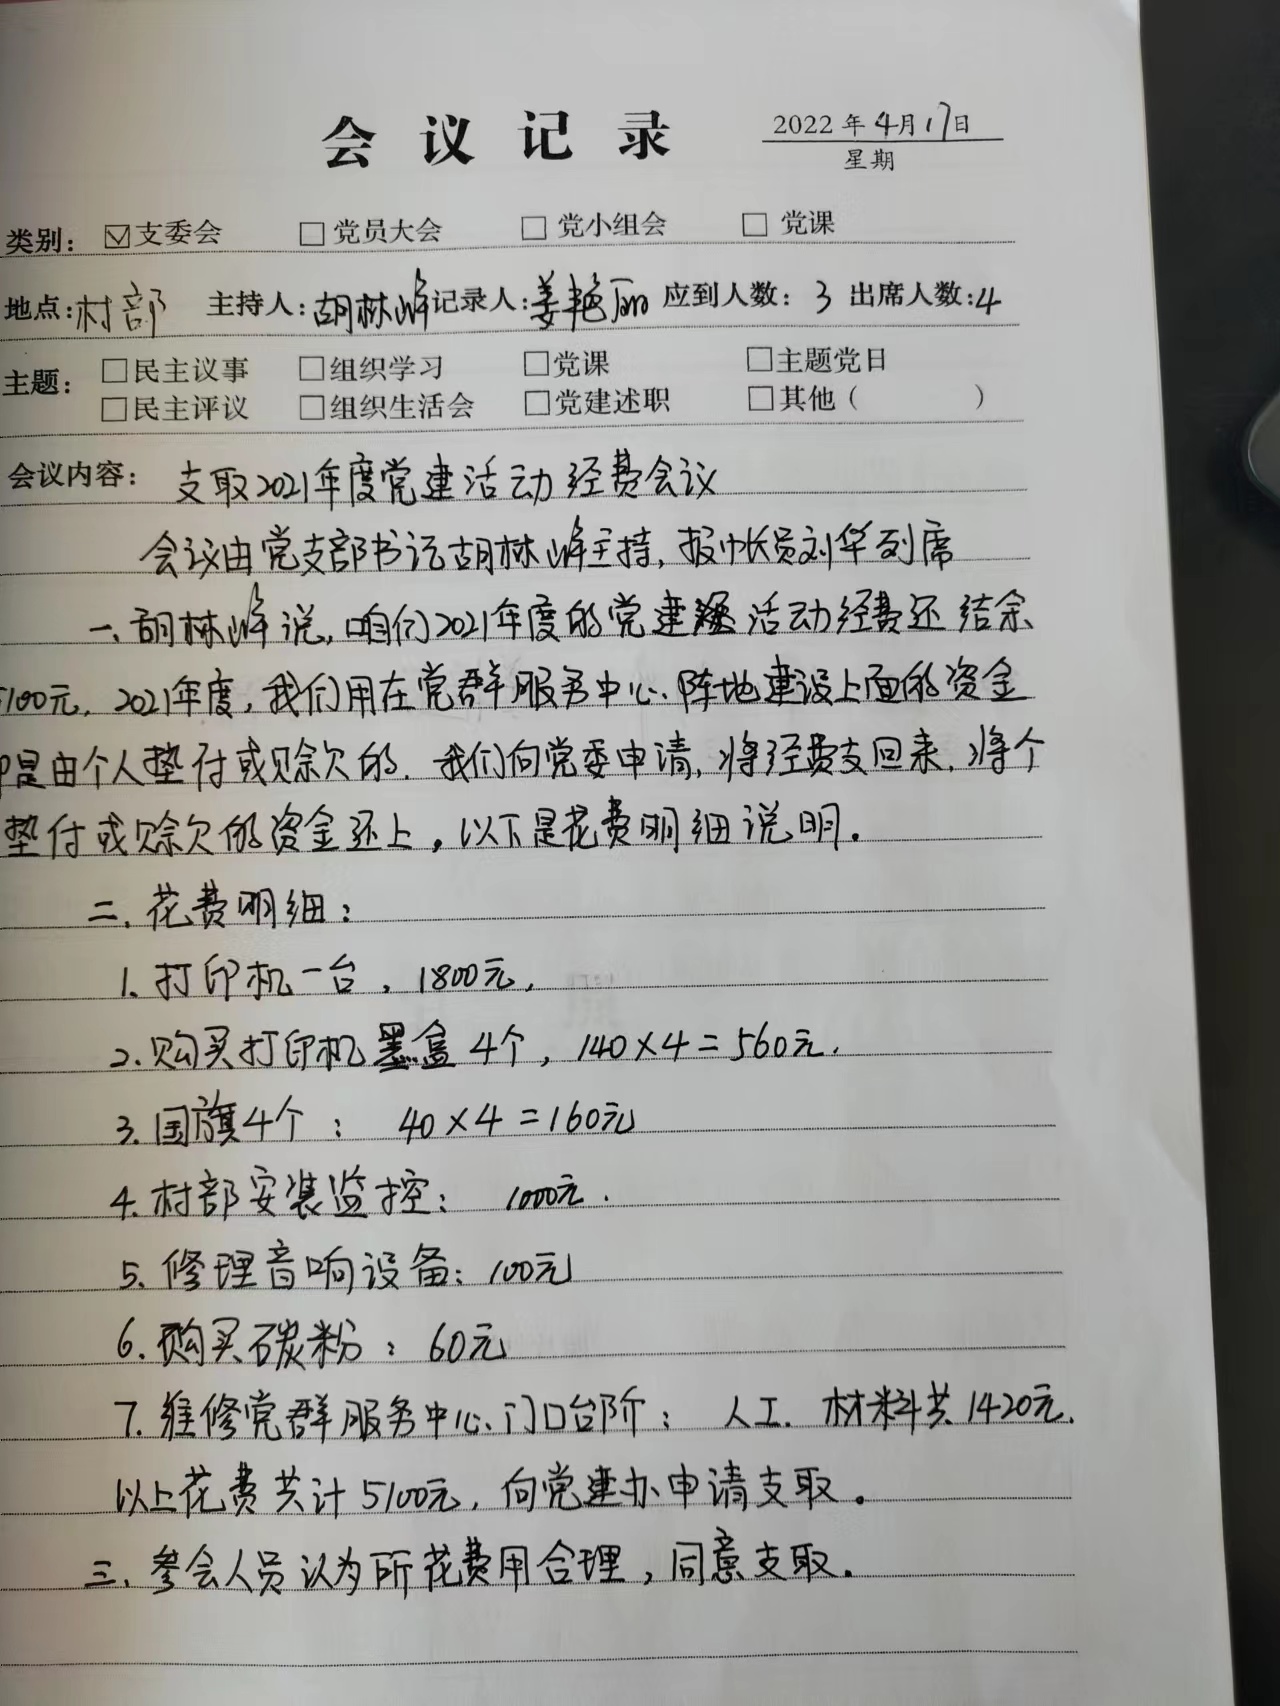 会议记录
2022年4月17日
星期
类别：☑支委会 □党员大会 □党小组会 □党课
地点：村部 主持人：胡林峰 记录人：姜艳丽 应到人数：3 出席人数：4
主题：□民主议事 □组织学习 □党课 □主题党日
□民主评议 □组织生活会 □党建述职 □其他（ ）
会议内容：支取2021年度党建活动经费会议
会议由党支部书记胡林峰主持，报帐员刘华列席
一、胡林峰说，咱们2021年度的党建活动经费还结余
5100元，2021年度，我们用在党群服务中心、阵地建设上面的资金
都是由个人垫付或赊欠的．我们向党委申请，将经费支回来，将个
垫付或赊欠的资金还上，以下是花费明细说明。
二、花费明细：
1. 打印机一台，1800元，
2. 购买打印机墨盒4个，140×4=560元．
3. 国旗4个： 40×4=160元
4. 村部安装监控： 1000元．
5. 修理音响设备：100元
6. 购买碳粉：60元
7. 维修党群服务中心、门口台阶： 人工．材料共1420元．
以上花费共计5100元，向党建办申请支取。
三、参会人员认为所花费用合理，同意支取。